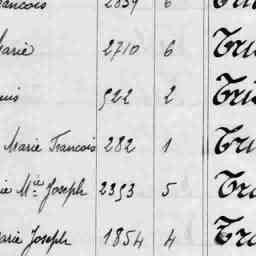 ancois 2859 6 Tri
Marie 2710 6 Tri
uis 522 2 Tri
Marie Francois 282 1 Tri
ie M^ie Joseph 2353 5 Tro
arie Joseph 1854 4 Tro